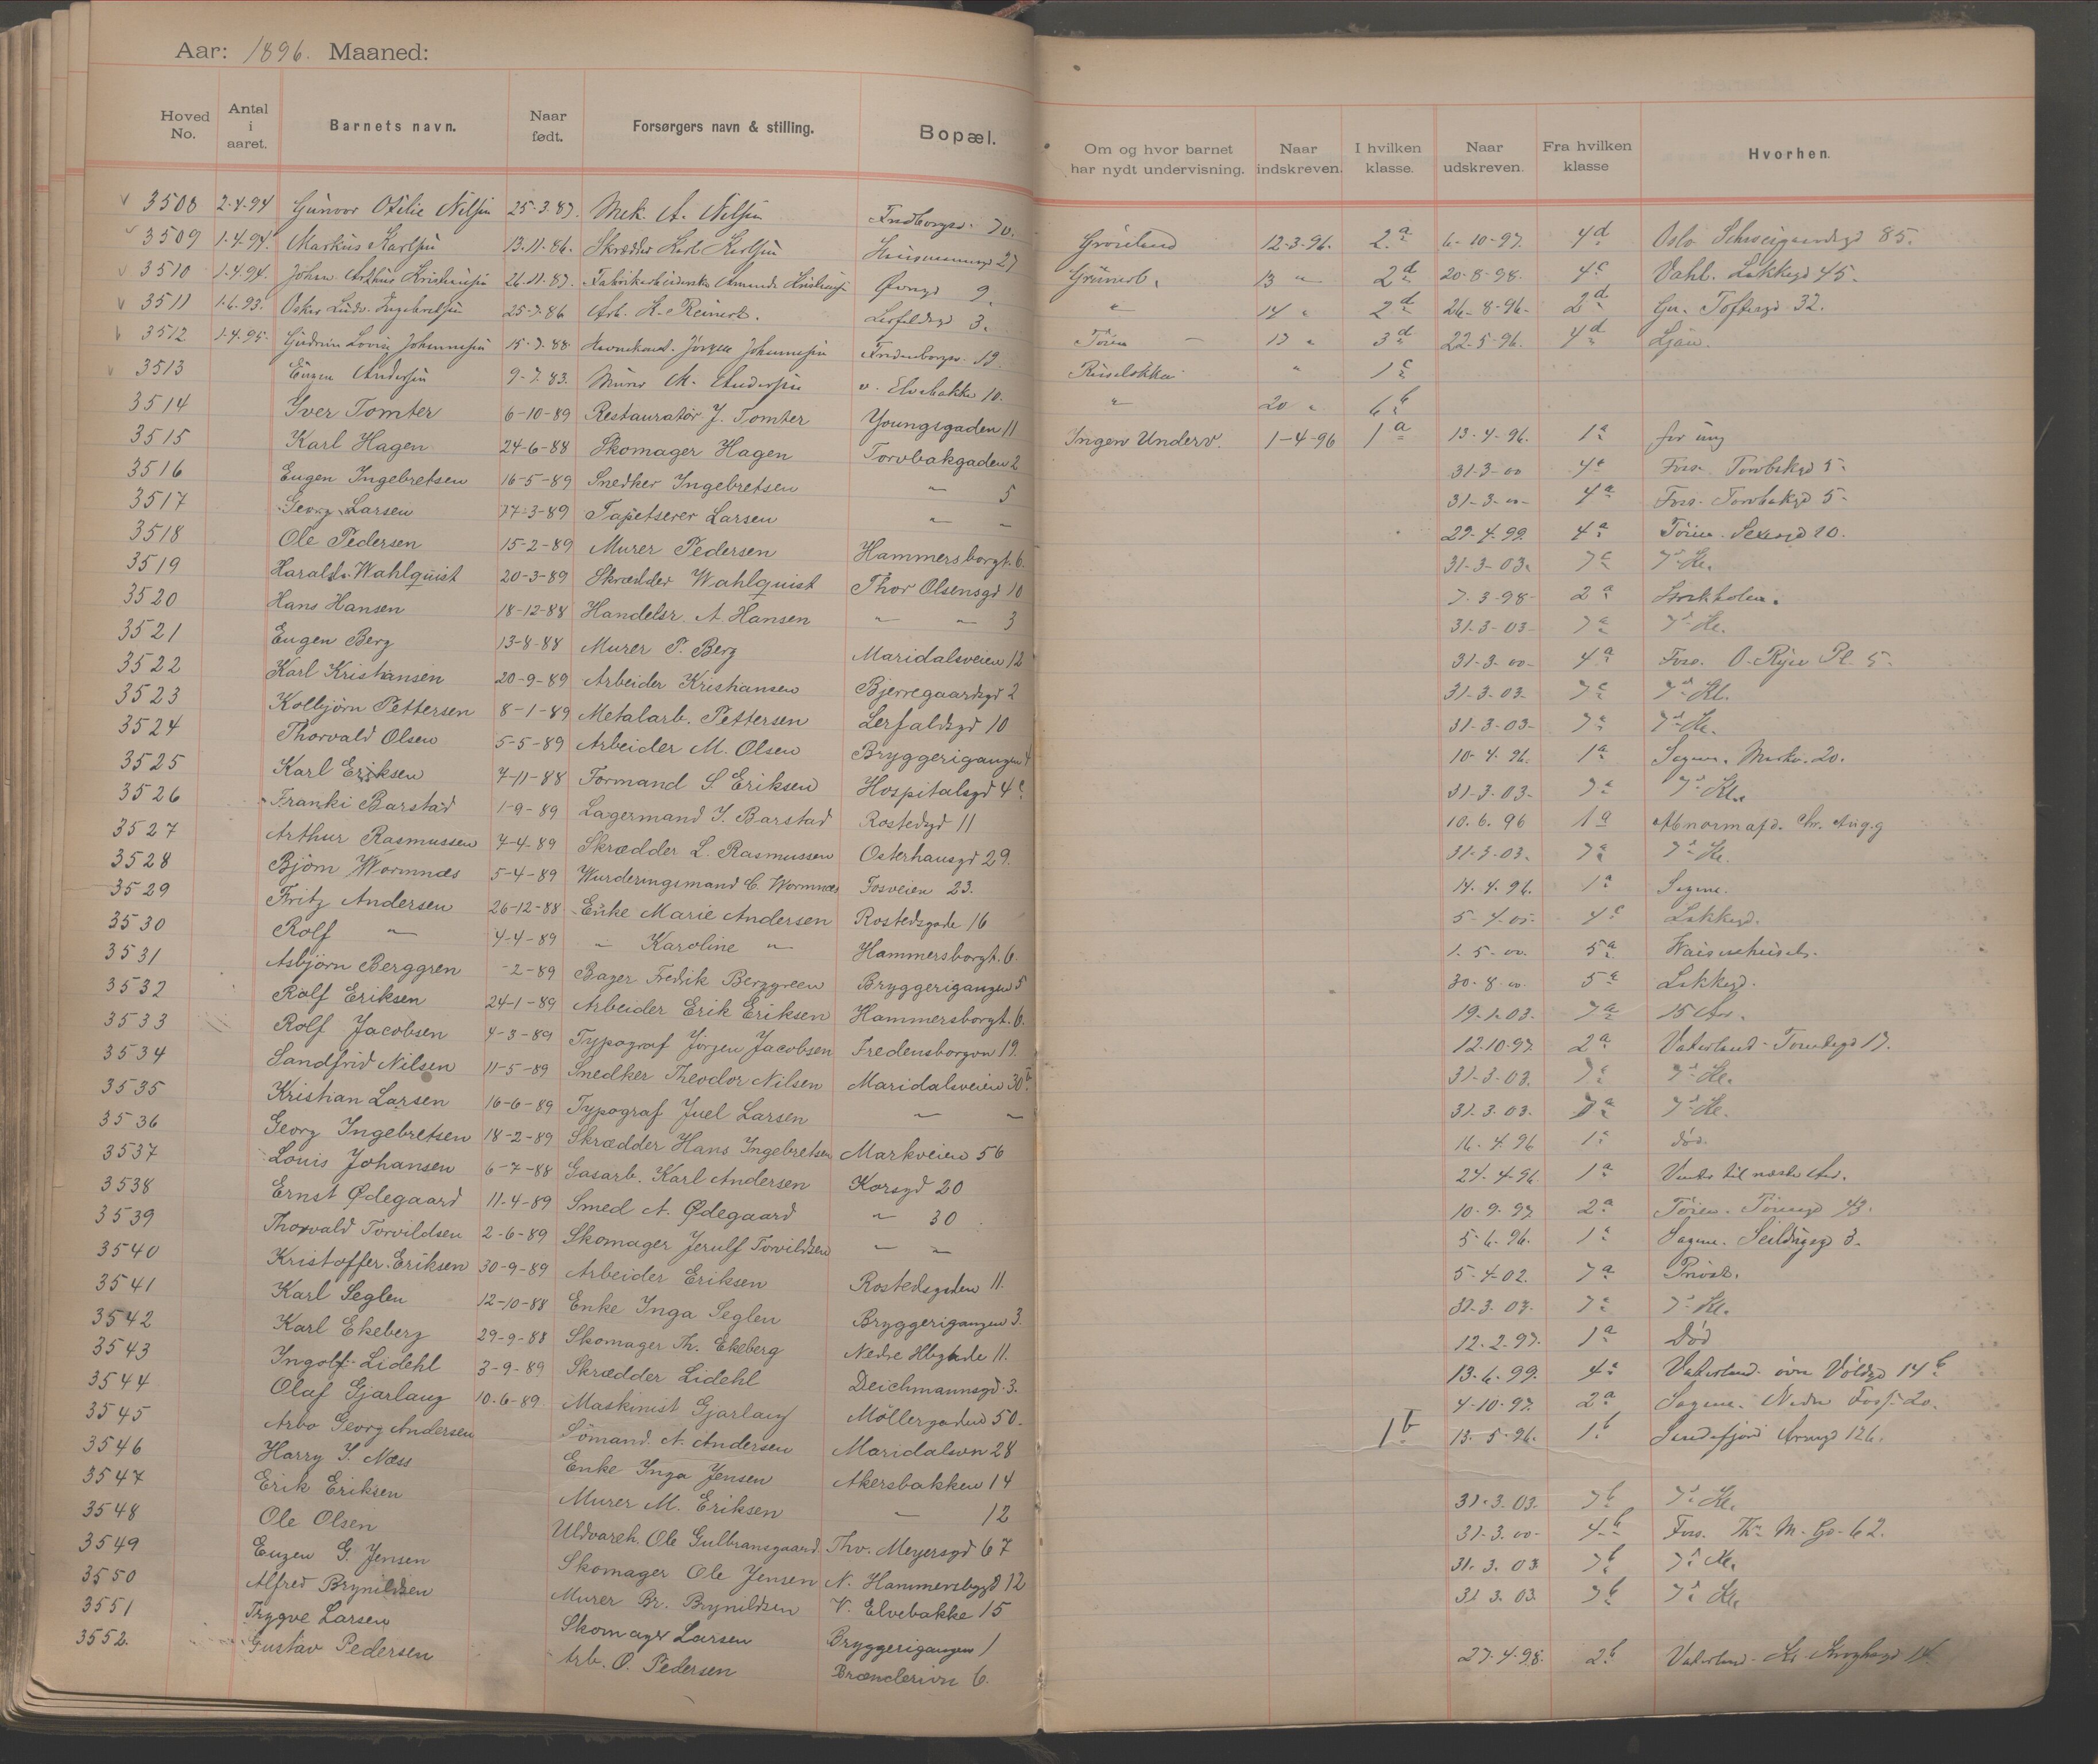 Aar: 1896. Maaned:
Hoved No. Antal i aaret. Barnets navn. Naar født. Forsørgers navn & stilling. Bopæl. Om og hvor barnet har nydt undervisning. Naar indskreven. I hvilken klasse. Naar udskreven. Fra hvilken klasse Hvorhen.
3508 2-4-94 Gunvor Otilie Nilsen 25-3-87. Mek. A. Nilsen 70. Grønland 12-3-96. 2a 6-10-97. 4d Oslo Schweigaardsgd 85.
3509 1-4-94. Markus Karlsen 13-11-86. Skrædder Karl Karlsen 27 Grünerl. 13 " 2d 20-8-98. 4c Vahl. Lakkegd 45.
3510 1-4-94. Johan Arthur Kristiansen 26-11-87. Fabrikarbeiderske Amanda Kristiansen 9. " 14 " 2d 26-8-96- 2d Gr. Toftesgd 32.
3511 1-6-93. Oskar Ludv. Ingebretsen 25-7-86 Arb. K. Reinert. Lerfaldsgd 3. Tøien - 17 " 3d 22-5-96. 4d Ljan.
3512 1-4-95. Gudrun Lovise Johannesen 15-7-88. Jørgen Johannesen Fredensborgv. 19. Ruseløkka " 1c
3513 Eugen Andersen 9-7-83. Murer M. Andersen v. Elvebakke 10. " 20 " 6b
3514 Yver Tomter 6-10-89 Restauratør J. Tomter Youngsgaden 11 Ingen Underv. 1-4-96 1a 13-4-96. 1a for ung
3515 Karl Hagen 24-6-88 Skomager Hagen Torvbakgaden 2 31-3-00 4a Foss. Torvbakgd 5.
3516 Eugen Ingebretsen 16-5-89 Snedker Ingebretsen " 5 31-3-00- 4a Foss. Torvbakgd 5-
3517 Georg Larsen 17-3-89 Tapetserer Larsen " " 29-4-99. 4a Tøien. 20.
3518 Ole Pedersen 15-2-89 Murer Pedersen Hammersborgt. 6. 31-3-03. 7a 7de Kl.
3519 Harald Wahlquist 20-3-89 Skrædder Wahlquist Thor Olsensgd 10 7-3-98- 2a Stockholm.
3520 Hans Hansen 18-12-88 Handelsr. A. Hansen " " 3 31-3-03- 7a 7de Kl.
3521 Eugen Berg 13-8-88 Murer P. Berg Maridalsveien 12 31-3-00- 4a Foss. O. Ryes Pl. 5-
3522 Karl Kristiansen 20-9-89 Arbeider Kristiansen Bjerregaardsgd 2 31-3-03. 7a 7de Kl.
3523 Kolbjørn Pettersen 8-1-89 Metalarb. Pettersen Lerfaldsgd 10 31-3-03- 7a 7de Kl.
3524 Thorvald Olsen 5-5-89 Arbeider M. Olsen Bryggerigangen 4 10-4-96. 1a Sagene. Markv. 20.
3525 Karl Eriksen 7-11-88 Formand S. Eriksen Hospitalsgd 4c. 31-3-03- 7a 7de Kl.
3526 Franki Barstad 1-9-89 Lagermand J. Barstad Rostedsgd 11 10.6.96 1a Abnormafd. Chr. Aug. g
3527 Arthur Rasmussen 7-4-89 Skrædder L. Rasmussen Osterhausgd 29. 31-3-03. 7a 7de Kl.
3528 Bjørn Wormnæs 5-4-89 Wurderingsmand C. Wormnæs Fosveien 23. 14.4.96. 1a Sagene.
3529 Fritz Andersen 26-12-88 Enke Marie Andersen Rostedsgade 16 5-4-05- 4c Lakkegd.
3530 Rolf " 4-4-89 " Karoline " Hammersborgt. 6. 1-5-00. 5a Waisenhuset.
3531 Asbjørn Berggren -2-89 Bager Fredrik Berggreen Bryggerigangen 5 30-8-00. 5a Lakkegd.
3532 Rolf Eriksen 24-1-89 Arbeider Erik Eriksen Hammersborgt. 6. 19-1-03. 7a 15 Aar.
3533 Rolf Jacobsen 4-3-89 Typograf Jørgen Jacobsen Fredensborgvn 19. 12-10-97. 2a Vaterland - Tomtegd 17.
3534 Sandfrid Nilsen 11-5-89 Snedker Theodor Nilsen Maridalsveien 30b. 31-3-03. 7a 7de Kl.
3535 Kristian Larsen 16-6-89 Typograf Juel Larsen " " 31.3.03. 7a 7de Kl.
3536 Georg Ingebretsen 18-2-89 Skrædder Hans Ingebretsen Markveien 56 16-4-96 1a død.
3537 Louis Johansen 6-7-88 Gasarb. Karl Andersen Korsgd 20 24-4-96. 1a Venter til næste Aar.
3538 Ernst Ødegaard 11-4-89 Smed A. Ødegaard " 30 10-9-97. 2a Tøien. Tøiengd 43.
3539 Thorvald Torvildsen 2-6-89 Skomager Jerulf Torvildsen " " 5-6-96. 1a Sagene. Seildugsgd 3.
3540 Kristoffer Eriksen 30-9-89 Arbeider Eriksen Rostedsgaden 11. 5-4-02. 7a Privat.
3541 Karl Seglen 12-10-88 Enke Inga Seglen Bryggerigangen 3. 31-3-03. 7a 7de Kl.
3542 Karl Ekeberg 29-9-88 Skomager Th. Ekeberg 11. 12.2.97. 1a Død
3543 Ingolf Lidehl 3-9-89 Skrædder Lidehl Deichmannsgd. 3. 13.6.99. 4a Vaterland øvre Voldgd 14b
3544 Olaf Gjarlang 10-6-89 Maskinist Gjarlang Møllergaden 50. 4-10-97. 2a Sagene. Nedre Foss. 20.
3545 Arbo Georg Andersen Sömand. A. Andersen Maridalsvn 28 1b 13-5-96. 1b Sandefjord 126.
3546 Harry J. Næss Enke Inga Jensen Akersbakken 14
3547 Erik Eriksen Murer M. Eriksen " 12 31-3-03. 7b 7de Kl.
3548 Ole Olsen Uldvareh. Ole Gulbransgaard Thv. Meyersgd 67 31-3-00- 4b Foss. Th. M. Gd. 62.
3549 Eugen G. Jensen Skomager Ole Jensen N. Hammersbggd 12 31.3.03 7b 7de Kl.
3550 Alfred Brynildsen Murer Br. Brynildsen V. Elvebakke 15 31 3. 03. 7b 7de Kl.
3551 Trygve Larsen Skomager Larsen Bryggerigangen 1
3552. Gustav Pedersen Arb. O. Pedersen Brænderivn 6. 27-4-98. 2b Vaterland. Kr. Kroghsgd 14.